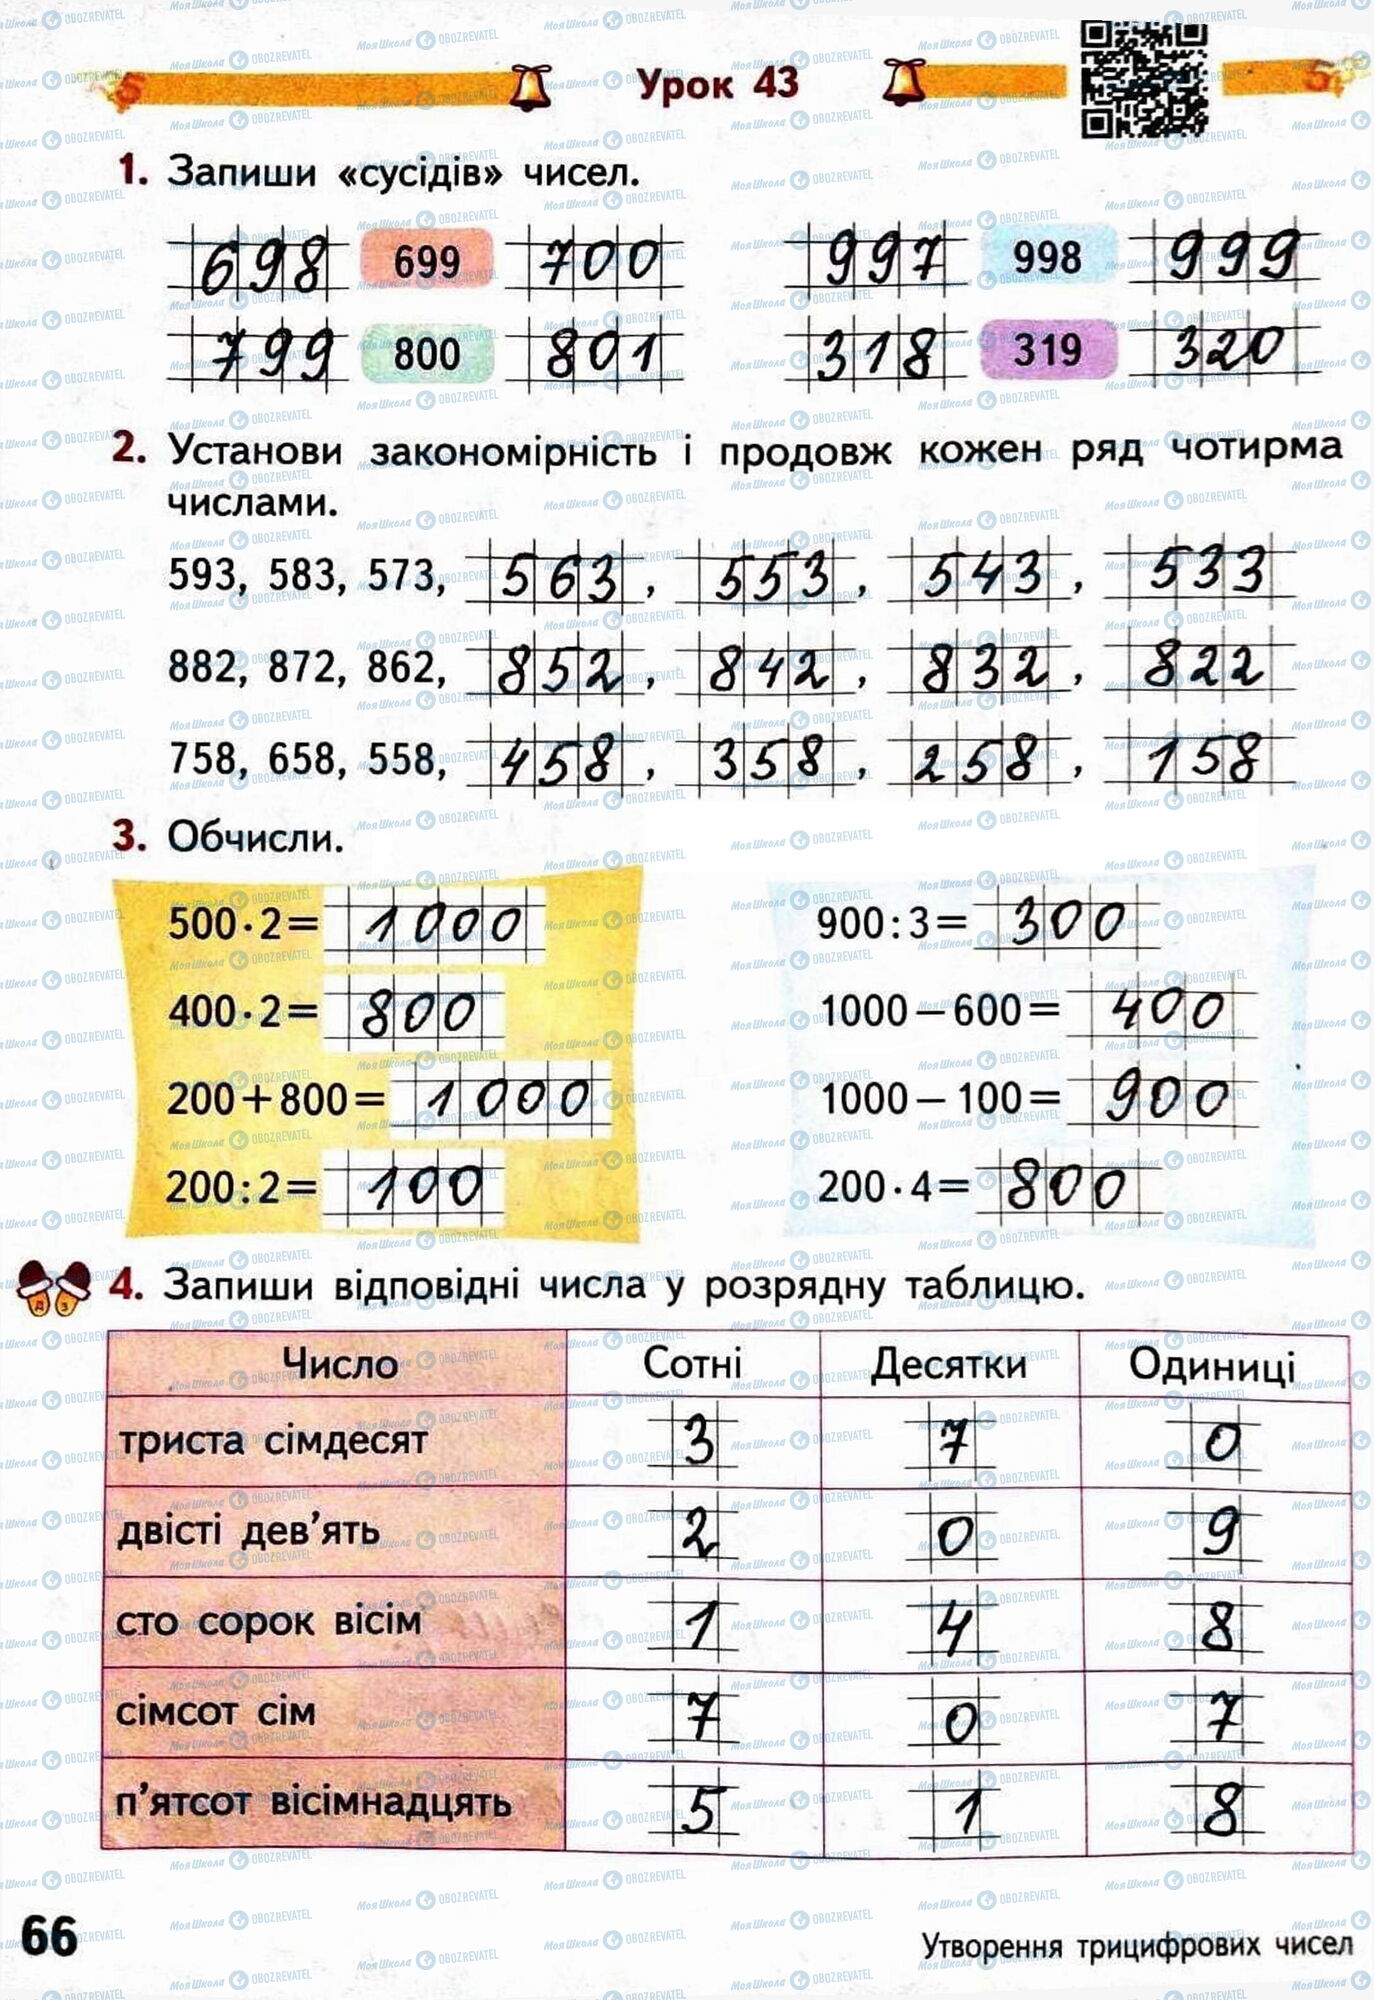 Урок 43
1. Запиши «сусідів» чисел.
698 699 700 997 998 999
799 800 801 318 319 320
2. Установи закономірність і продовж кожен ряд чотирма
числами.
593, 583, 573, 563, 553, 543, 533
882, 872, 862, 852, 842, 832, 822
758, 658, 558, 458, 358, 258, 158
3. Обчисли.
500·2= 1000 900:3= 300
400·2= 800 1000-600= 400
200+800= 1000 1000-100= 900
200:2= 100 200·4= 800
4. Запиши відповідні числа у розрядну таблицю.
Число Сотні Десятки Одиниці
триста сімдесят 3 7 0
двісті дев'ять 2 0 9
сто сорок вісім 1 4 8
сімсот сім 7 0 7
п'ятсот вісімнадцять 5 1 8
66
Утворення трицифрових чисел